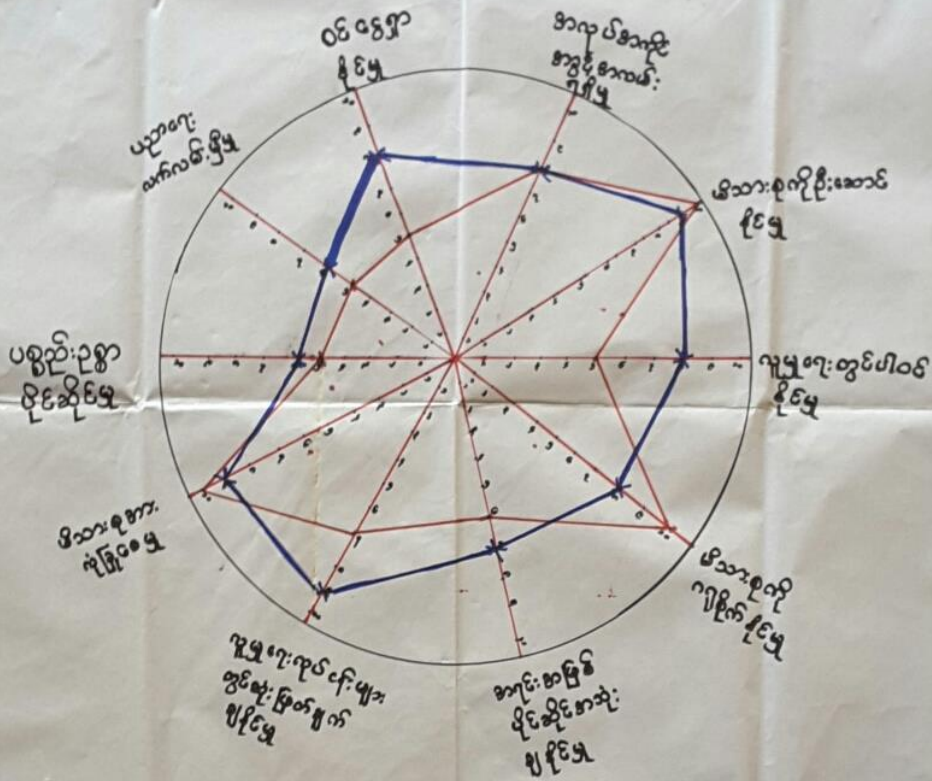 ဝင်ငွေရှာ
နိုင်မှု
အလုပ်အကိုင်
အခွင့်အလမ်း
ရရှိမှု
မိသားစုကိုဦးဆောင်
နိုင်မှု
လူမှုရေးတွင်ပါဝင်
နိုင်မှု
မိသားစုကို
ဂရုစိုက်နိုင်မှု
အရင်းအမြစ်
ပိုင်ဆိုင်အသုံး
ချနိုင်မှု
လူမှုရေးလုပ်ငန်းများ
တွင်ဆုံးဖြတ်ချက်
ချနိုင်မှု
မိသားစုအား
ယုံကြည်စေမှု
ပစ္စည်းဥစ္စာ
ပိုင်ဆိုင်မှု
ပညာရေး
လက်လမ်းမှီမှု